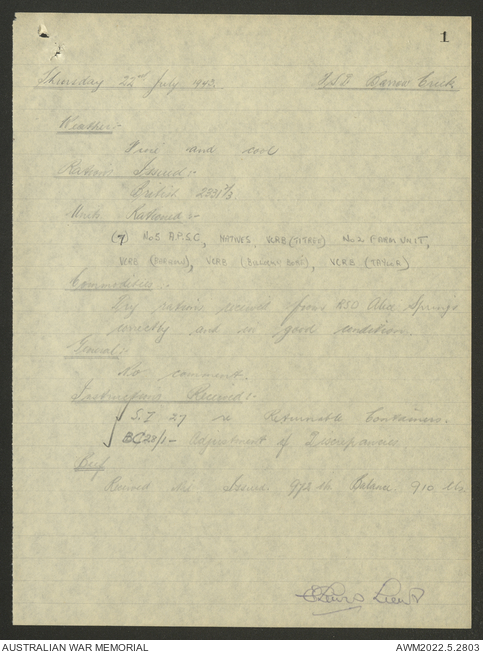 1
Thursday 22nd July 1943. FSD Barrow Creek
Weather:-
Fine and cool
Rations Issued:-
British 2331 1/3
Units Rationed:-
(7) No5 A.P.S.C, NATIVES, VCRB (TITREE) No2 FARM UNIT,
VCRB (BARROW), VCRB VCRB (TAYLOR)
Commodities:-
Dry rations received from RSO Alice Springs
correctly and in good condition.
General:-
No comment.
Instructions Received:-
S.I 27 re Returnable Containers.
BC28/1- Adjustment of Discrepancies
Beef
Received Nil Issued 972 lb Balance 910 lbs.
Lieut
AUSTRALIAN WAR MEMORIAL AWM2022.5.2803